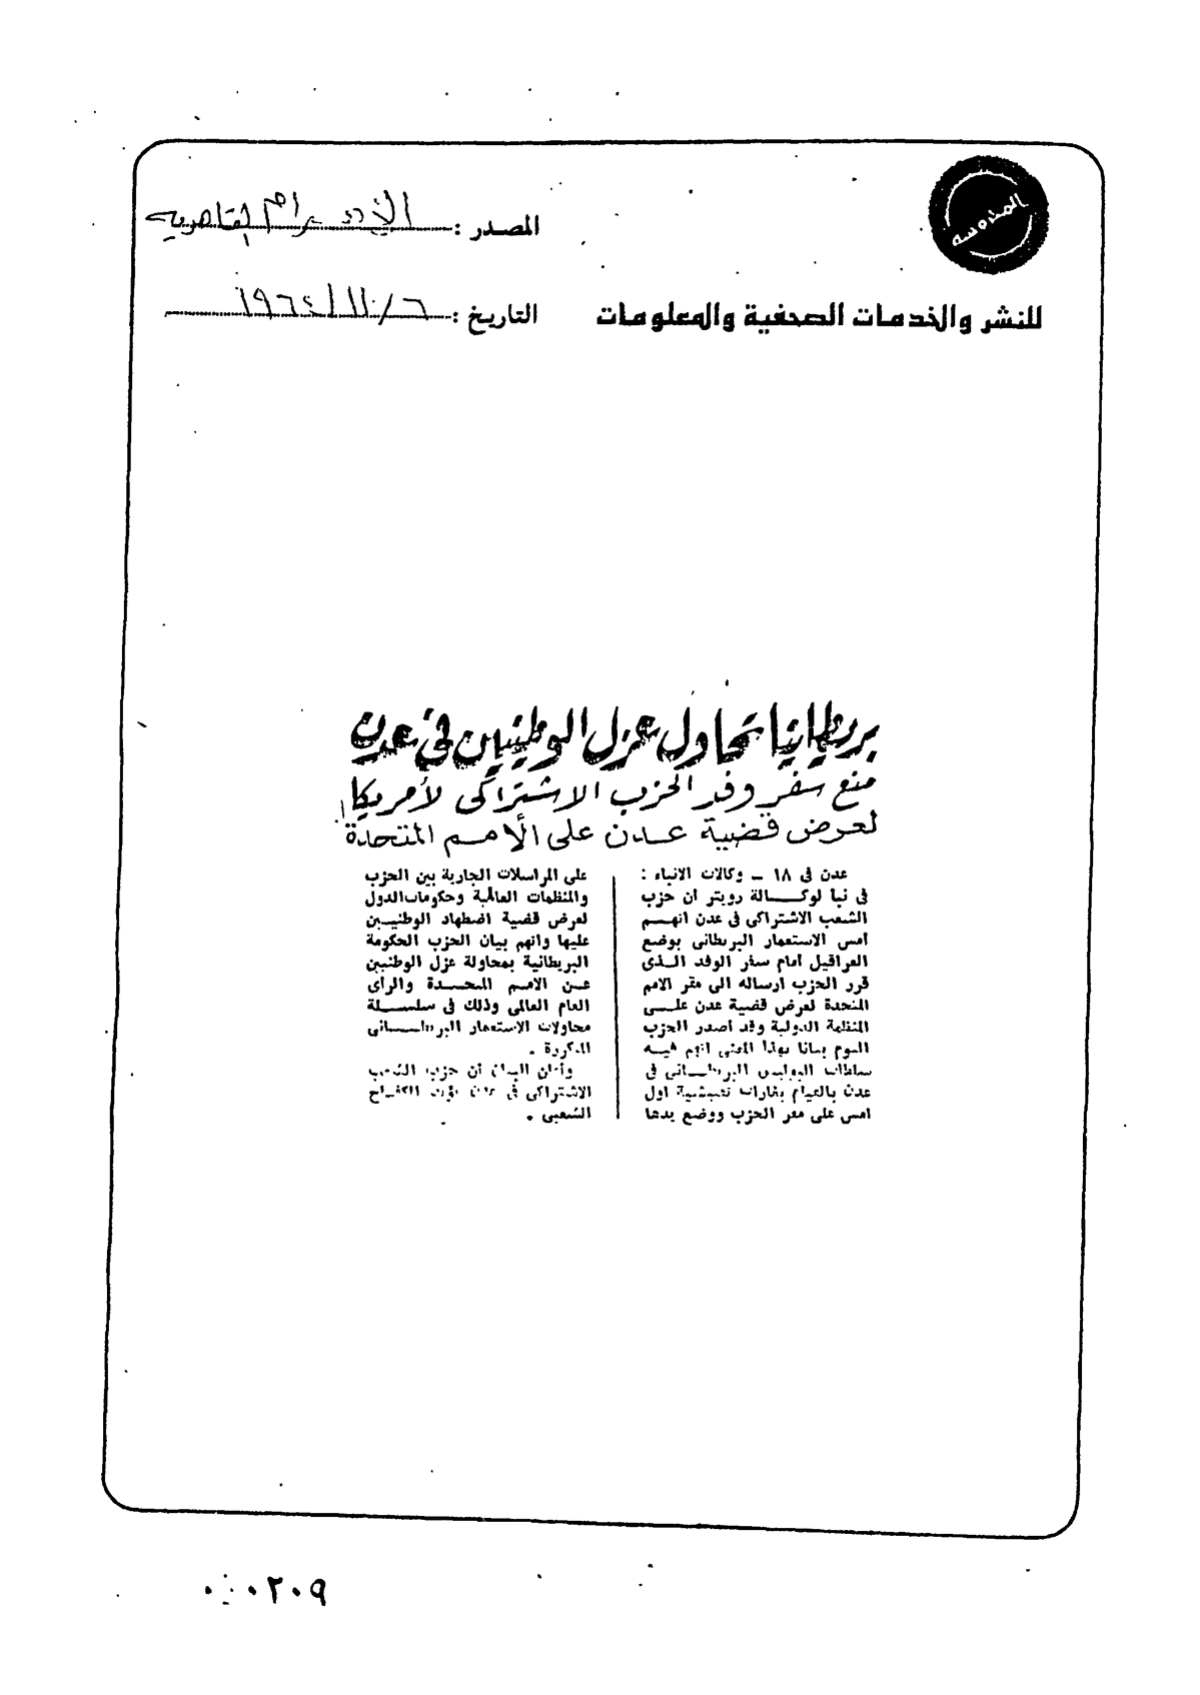 المحروسة
للنشر والخدمات الصحفية والمعلومات
المصدر : الأهرام القاهرية
التاريخ : ٦ / ١١ / ١٩٦٤
بريطانيا تحاول عزل الوطنيين فى عدن
منع سفر وفد الحزب الاشتراكى لأمريكا
لعرض قضية عدن على الأمم المتحدة
عدن فى ١٨ ـ وكالات الانباء :
فى نبا لوكالة رويتر ان حزب
الشعب الاشتراكى فى عدن اتهم
امس الاستعمار البريطانى بوضع
العراقيل امام سفر الوفد الذى
قرر الحزب ارساله الى مقر الامم
المتحدة لعرض قضية عدن على
المنظمة الدولية وقد اصدر الحزب
اليوم بيانا بهذا المعنى اتهم فيه
سلطات البوليس البريطانى فى
عدن بالقيام بغارات تفتيشية اول
امس على مقر الحزب ووضع يدها
على المراسلات الجارية بين الحزب
والمنظمات العالمية وحكومات الدول
لعرض قضية اضطهاد الوطنيين
عليها واتهم بيان الحزب الحكومة
البريطانية بمحاولة عزل الوطنيين
عن الامم المتحدة والرأى
العام العالمى وذلك فى سلسلة
محاولات الاستعمار البريطانى
المكررة .
وأعلن البيان أن حزب الشعب
الاشتراكى فى عدن يؤيد الكفاح
الشعبى .
٠٠٠٢٠٩